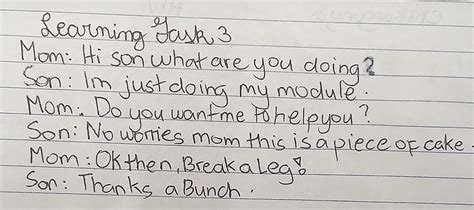 Learning Task 3
Mom: Hi son what are you doing?
Son: Im just doing my module.
Mom: Do you want me to help you?
Son: No worries mom this is a piece of cake.
Mom: Ok then, Break a Leg!
Son: Thanks a Bunch.